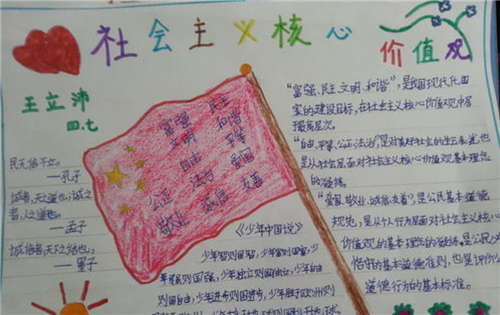 社会主义核心
价值观
王立沛
四.七
富强 民主
文明 和谐
自由 平等
公正 法治 爱国
敬业 诚信 友善
民无信不立。
——孔子
诚者,天之道也;诚之
者,人之道也。
——孟子
诚信者,天下之结也。
——董子
“富强、民主、文明、和谐”,是我国现代化国
家的建设目标,在社会主义核心价值观中居
最高层次。
“自由、平等、公正、法治”,是对美好社会的生动表述,也
是从社会层面对社会主义核心价值观基本理念
的凝练。
“爱国、敬业、诚信、友善”,是公民基本道德
规范,是从个人行为层面对社会主义核心
价值观的基本理念的凝练,是公民必
恪守的基本道德准则,也是评价公
道德行为的基本标准。
《少年中国说》
少年智则国智,少年富则国富,少
年强则国强,少年独立则国独立,少年自由
则国自由,少年进步则国进步,少年胜于欧洲则